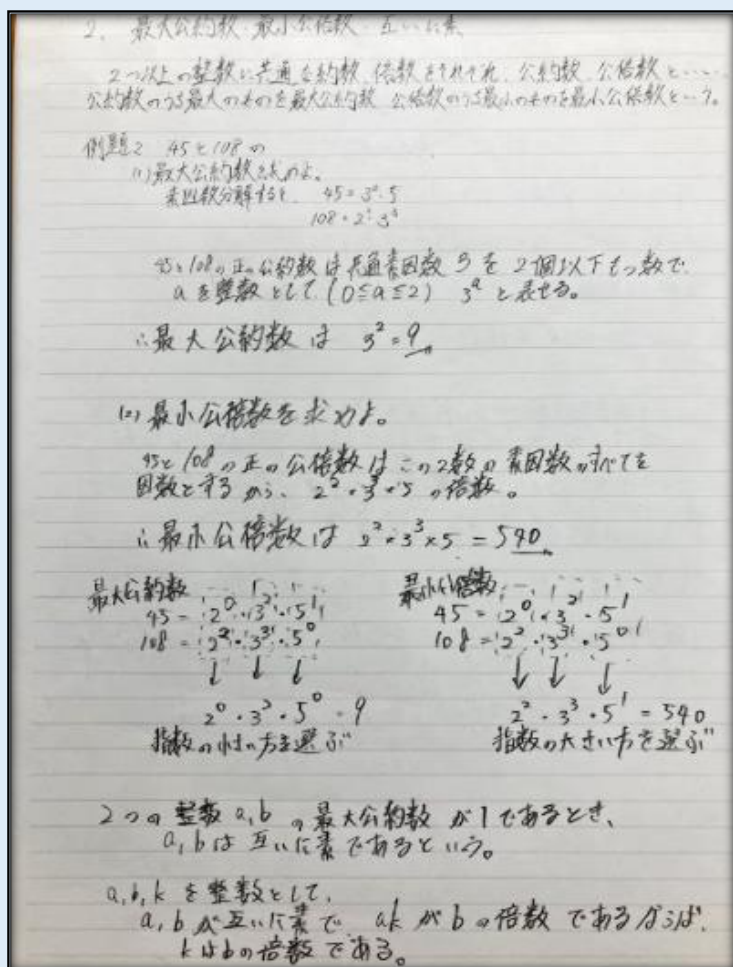 2. 最大公約数・最小公倍数・互いに素
2つ以上の整数に共通な約数、倍数をそれぞれ、公約数、公倍数といい、
公約数のうち最大のものを最大公約数、公倍数のうち最小のものを最小公倍数という。
例題2 45と108の
(1)最大公約数を求めよ。
素因数分解すると、 45=3²・5
108=2²・3³
45と108の正の公約数は共通素因数3を2個以下もつ数で、
aを整数として(0≦a≦2) 3^a と表せる。
∴最大公約数は 3²=9
(2)最小公倍数を求めよ。
45と108の正の公倍数はこの2数の素因数のすべてを
因数とするから、 2²・3³・5の倍数。
∴最小公倍数は 2²・3³×5=540
最大公約数
45=2⁰・3²・5¹
108=2²・3³・5⁰
↓ ↓ ↓
2⁰・3²・5⁰=9
指数の小さい方を選ぶ
最小公倍数
45=2⁰・3²・5¹
108=2²・3³・5⁰
↓ ↓ ↓
2²・3³・5¹=540
指数の大きい方を選ぶ
2つの整数a,bの最大公約数が1であるとき、
a,bは互いに素であるという。
a,b,kを整数として、
a,bが互いに素で akがbの倍数であるならば、
kはbの倍数である。